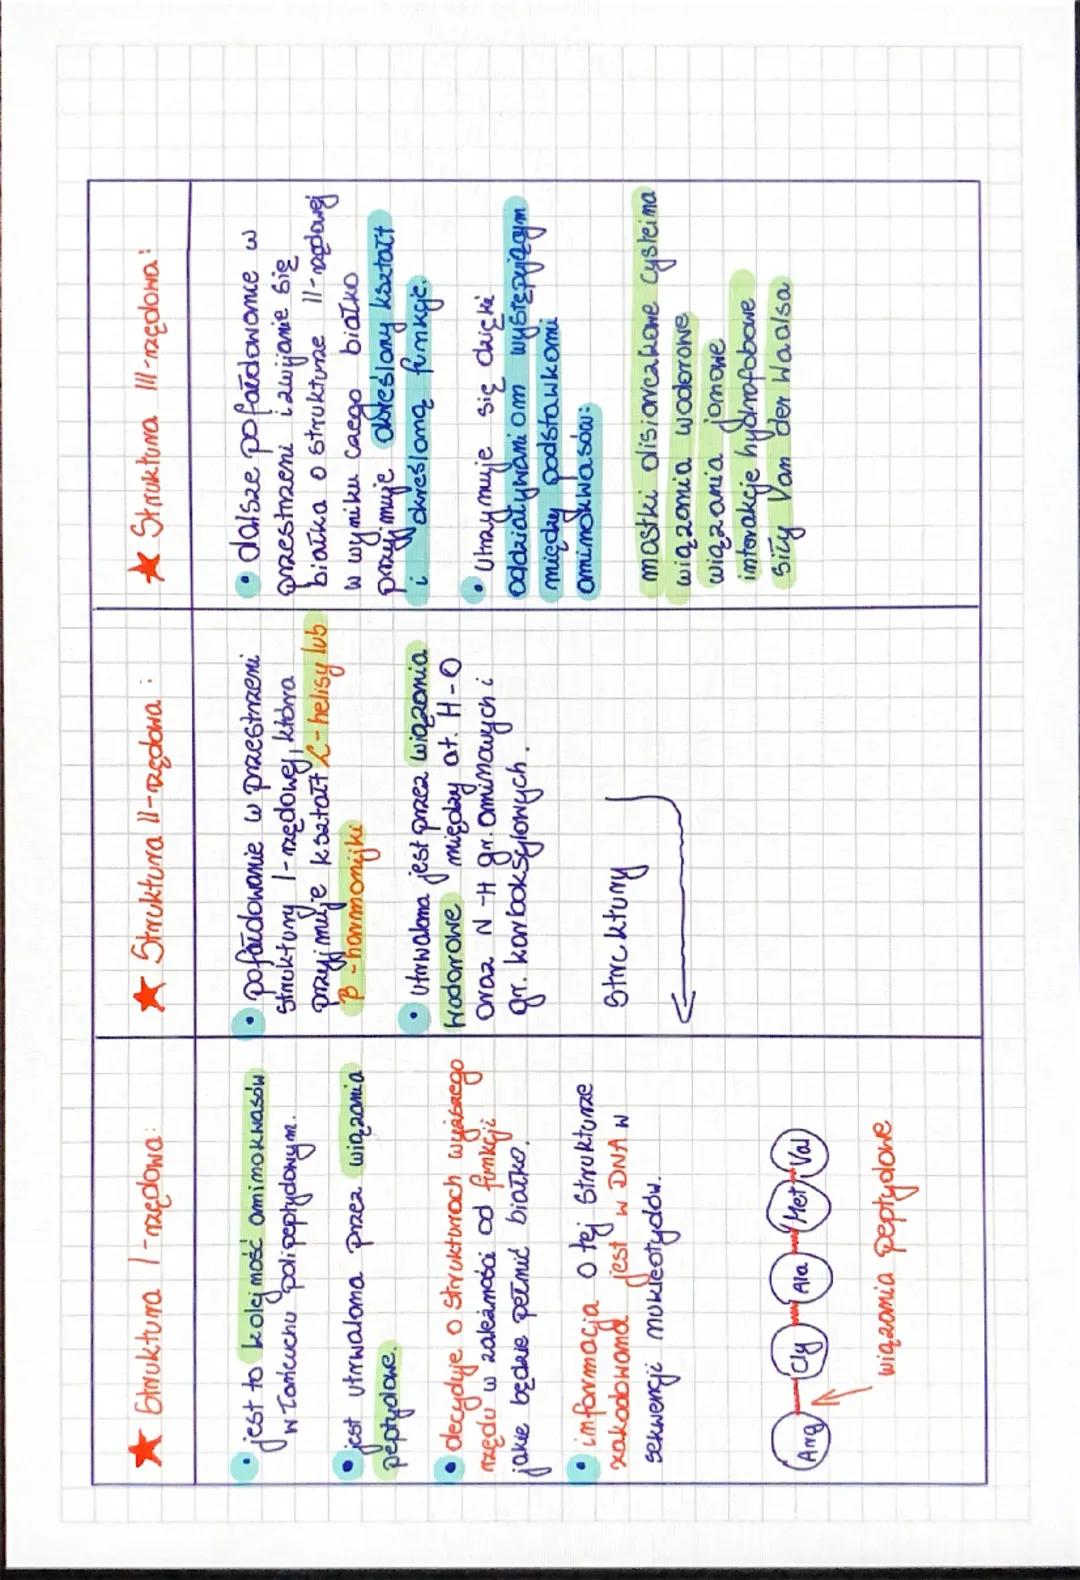 ★ Struktura I-rzędowa:
• jest to kolejność aminokwasów
w łańcuchu polipeptydowym.
• jest utrwalona przez wiązania
peptydowe.
• decyduje o strukturach wyższego
rzędu w zależności od funkcji
jakie będzie pełnić białko.
• informacja o tej strukturze
zakodowana jest w DNA w
sekwencji nukleotydów.
Arg Gly Ala Met Val
wiązania peptydowe
★ Struktura II-rzędowa:
• pofałdowanie w przestrzeni
struktury I-rzędowej, która
przyjmuje kształt L-helisy lub
β-harmonijki
• Utrwalona jest przez wiązania
wodorowe między at. H-O
oraz N-H gr. aminowych i
gr. karboksylowych.
Strcktury
★ Struktura III-rzędowa:
• dalsze pofałdowanie w
przestrzeni i zwijanie się
białka o strukturze II-rzędowej
w wyniku czego białko
przyjmuje określony kształt
i określoną funkcję.
• Utrzymuje się dzięki
oddziaływaniom występującym
między podstawkami
aminokwasów:
mostki disiarczkowe Cysteina
wiązania wodorowe
wiązania jonowe
interakcje hydrofobowe
Siły Van der Waalsa